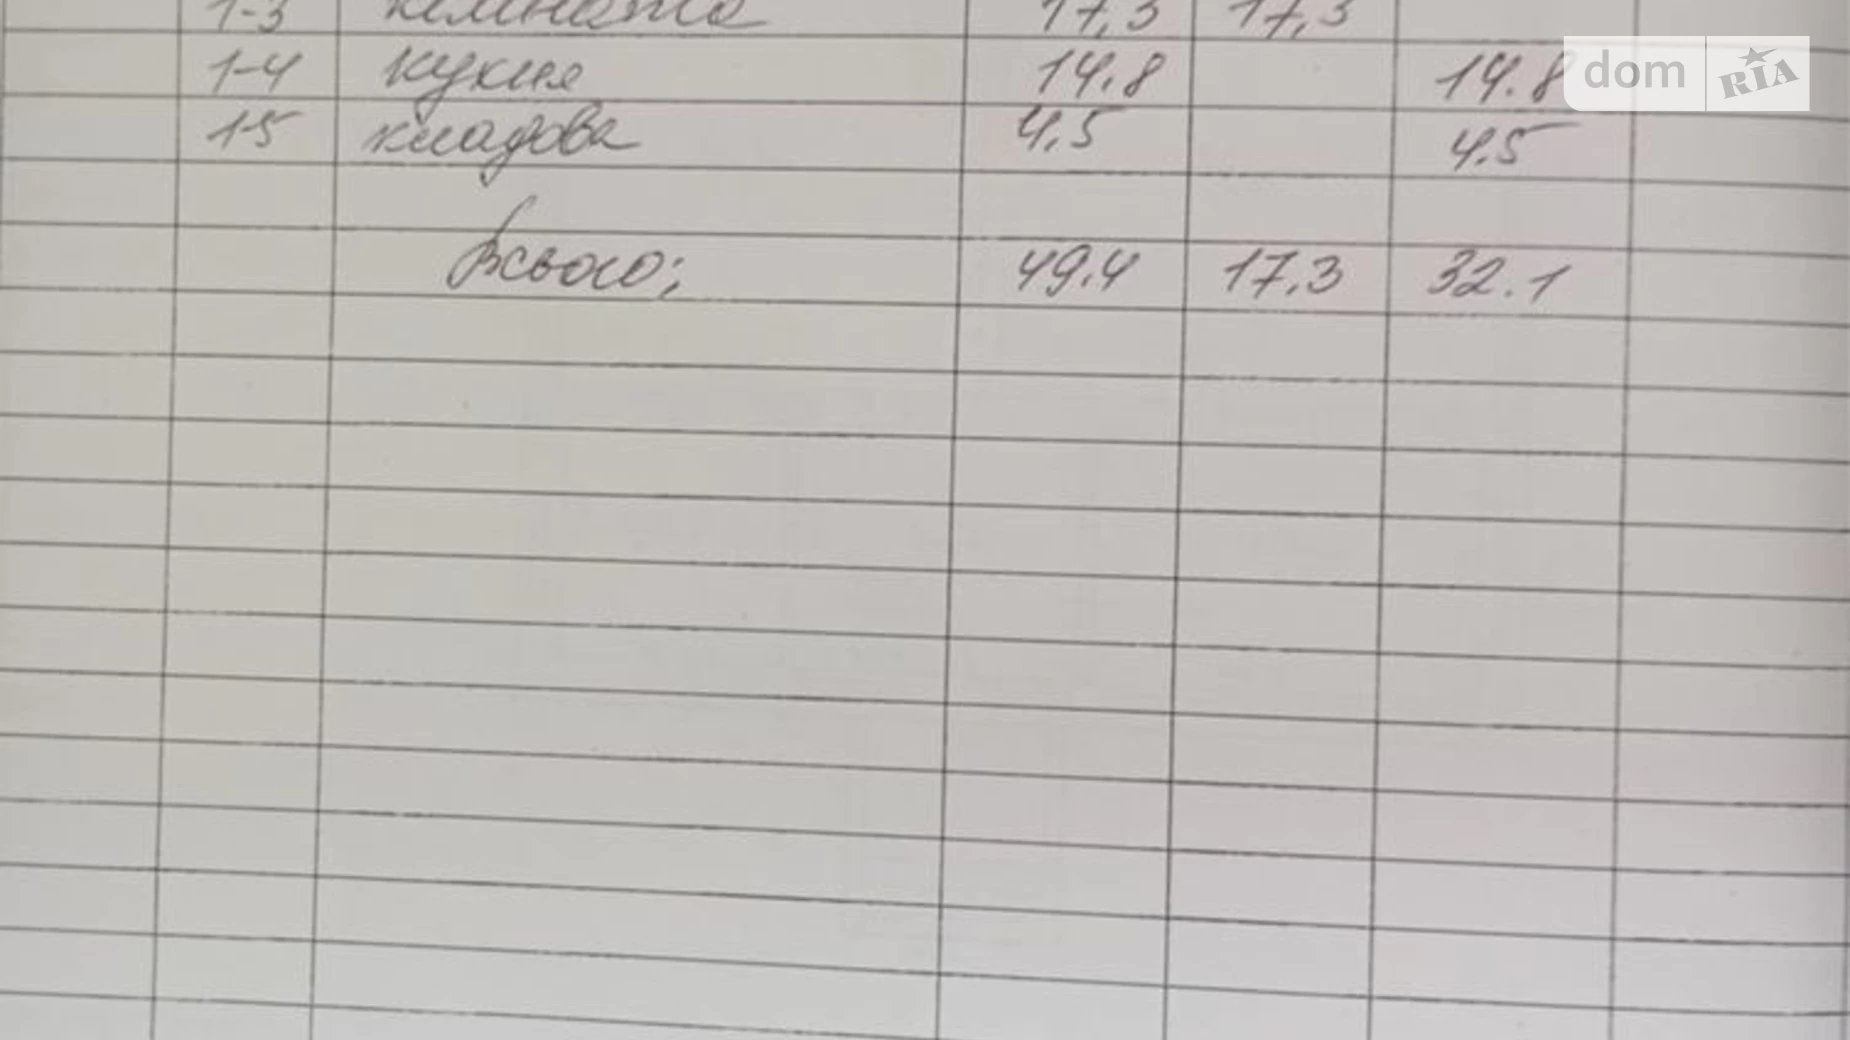 1-3 кімната 17,3 17,3
1-4 кухня 14.8 14.8
1-5 кладова 4,5 4.5
Всього: 49.4 17.3 32.1
dom RIA